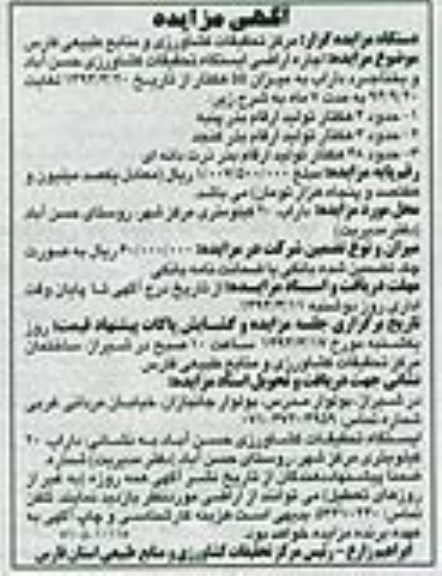 آگهی مزایده
دستگاه مزایده گزار: مرکز تحقیقات کشاورزی و منابع طبیعی فارس
موضوع مزایده: اجاره اراضی ایستگاه تحقیقات کشاورزی حسن آباد
و بختاجرد داراب به میزان هکتار از تاریخ ۱۳۹۳/۳/۲۰ لغایت
به مدت ماه به شرح زیر:
۱- حدود ۲ هکتار تولید ارقام بذر پنبه
۲- حدود هکتار تولید ارقام بذر کنجد
۳- حدود ۳۸ هکتار تولید ارقام بذر ذرت دانه ای
رقم پایه مزایده: مبلغ ریال (معادل یکصد میلیون و
هفتصد و پنجاه هزار تومان) می باشد.
محل مورد مزایده: داراب ۲۰ کیلومتری مرکز شهر، روستای حسن آباد
(دفتر مدیریت)
میزان و نوع تضمین شرکت در مزایده: ریال به صورت
چک تضمین شده بانکی یا ضمانت نامه بانکی
مهلت دریافت و اسناد مزایده: از تاریخ درج آگهی تا پایان وقت
اداری روز دوشنبه
تاریخ برگزاری جلسه مزایده و گشایش پاکات پیشنهاد قیمت: روز
یکشنبه مورخ ساعت ۱۰ صبح در شیراز، ساختمان
مرکز تحقیقات کشاورزی و منابع طبیعی فارس
نشانی جهت دریافت و تحویل اسناد مزایده:
در شیراز، بولوار مدرس، بولوار جانبازان، خیابان غربی
شماره تماس:
ایستگاه تحقیقات کشاورزی حسن آباد به نشانی: داراب ۲۰
کیلومتری مرکز شهر، روستای حسن آباد (دفتر مدیریت) شماره
ضمنا پیشنهاددهندگان از تاریخ نشر آگهی همه روزه (به غیر از
روزهای تعطیل) می توانند از اراضی موردنظر بازدید نمایند. تلفن
تماس: بدیهی است هزینه کارشناسی و چاپ آگهی به
عهده برنده مزایده خواهد بود.
ابراهیم زارع - رئیس مرکز تحقیقات کشاورزی و منابع طبیعی استان فارس